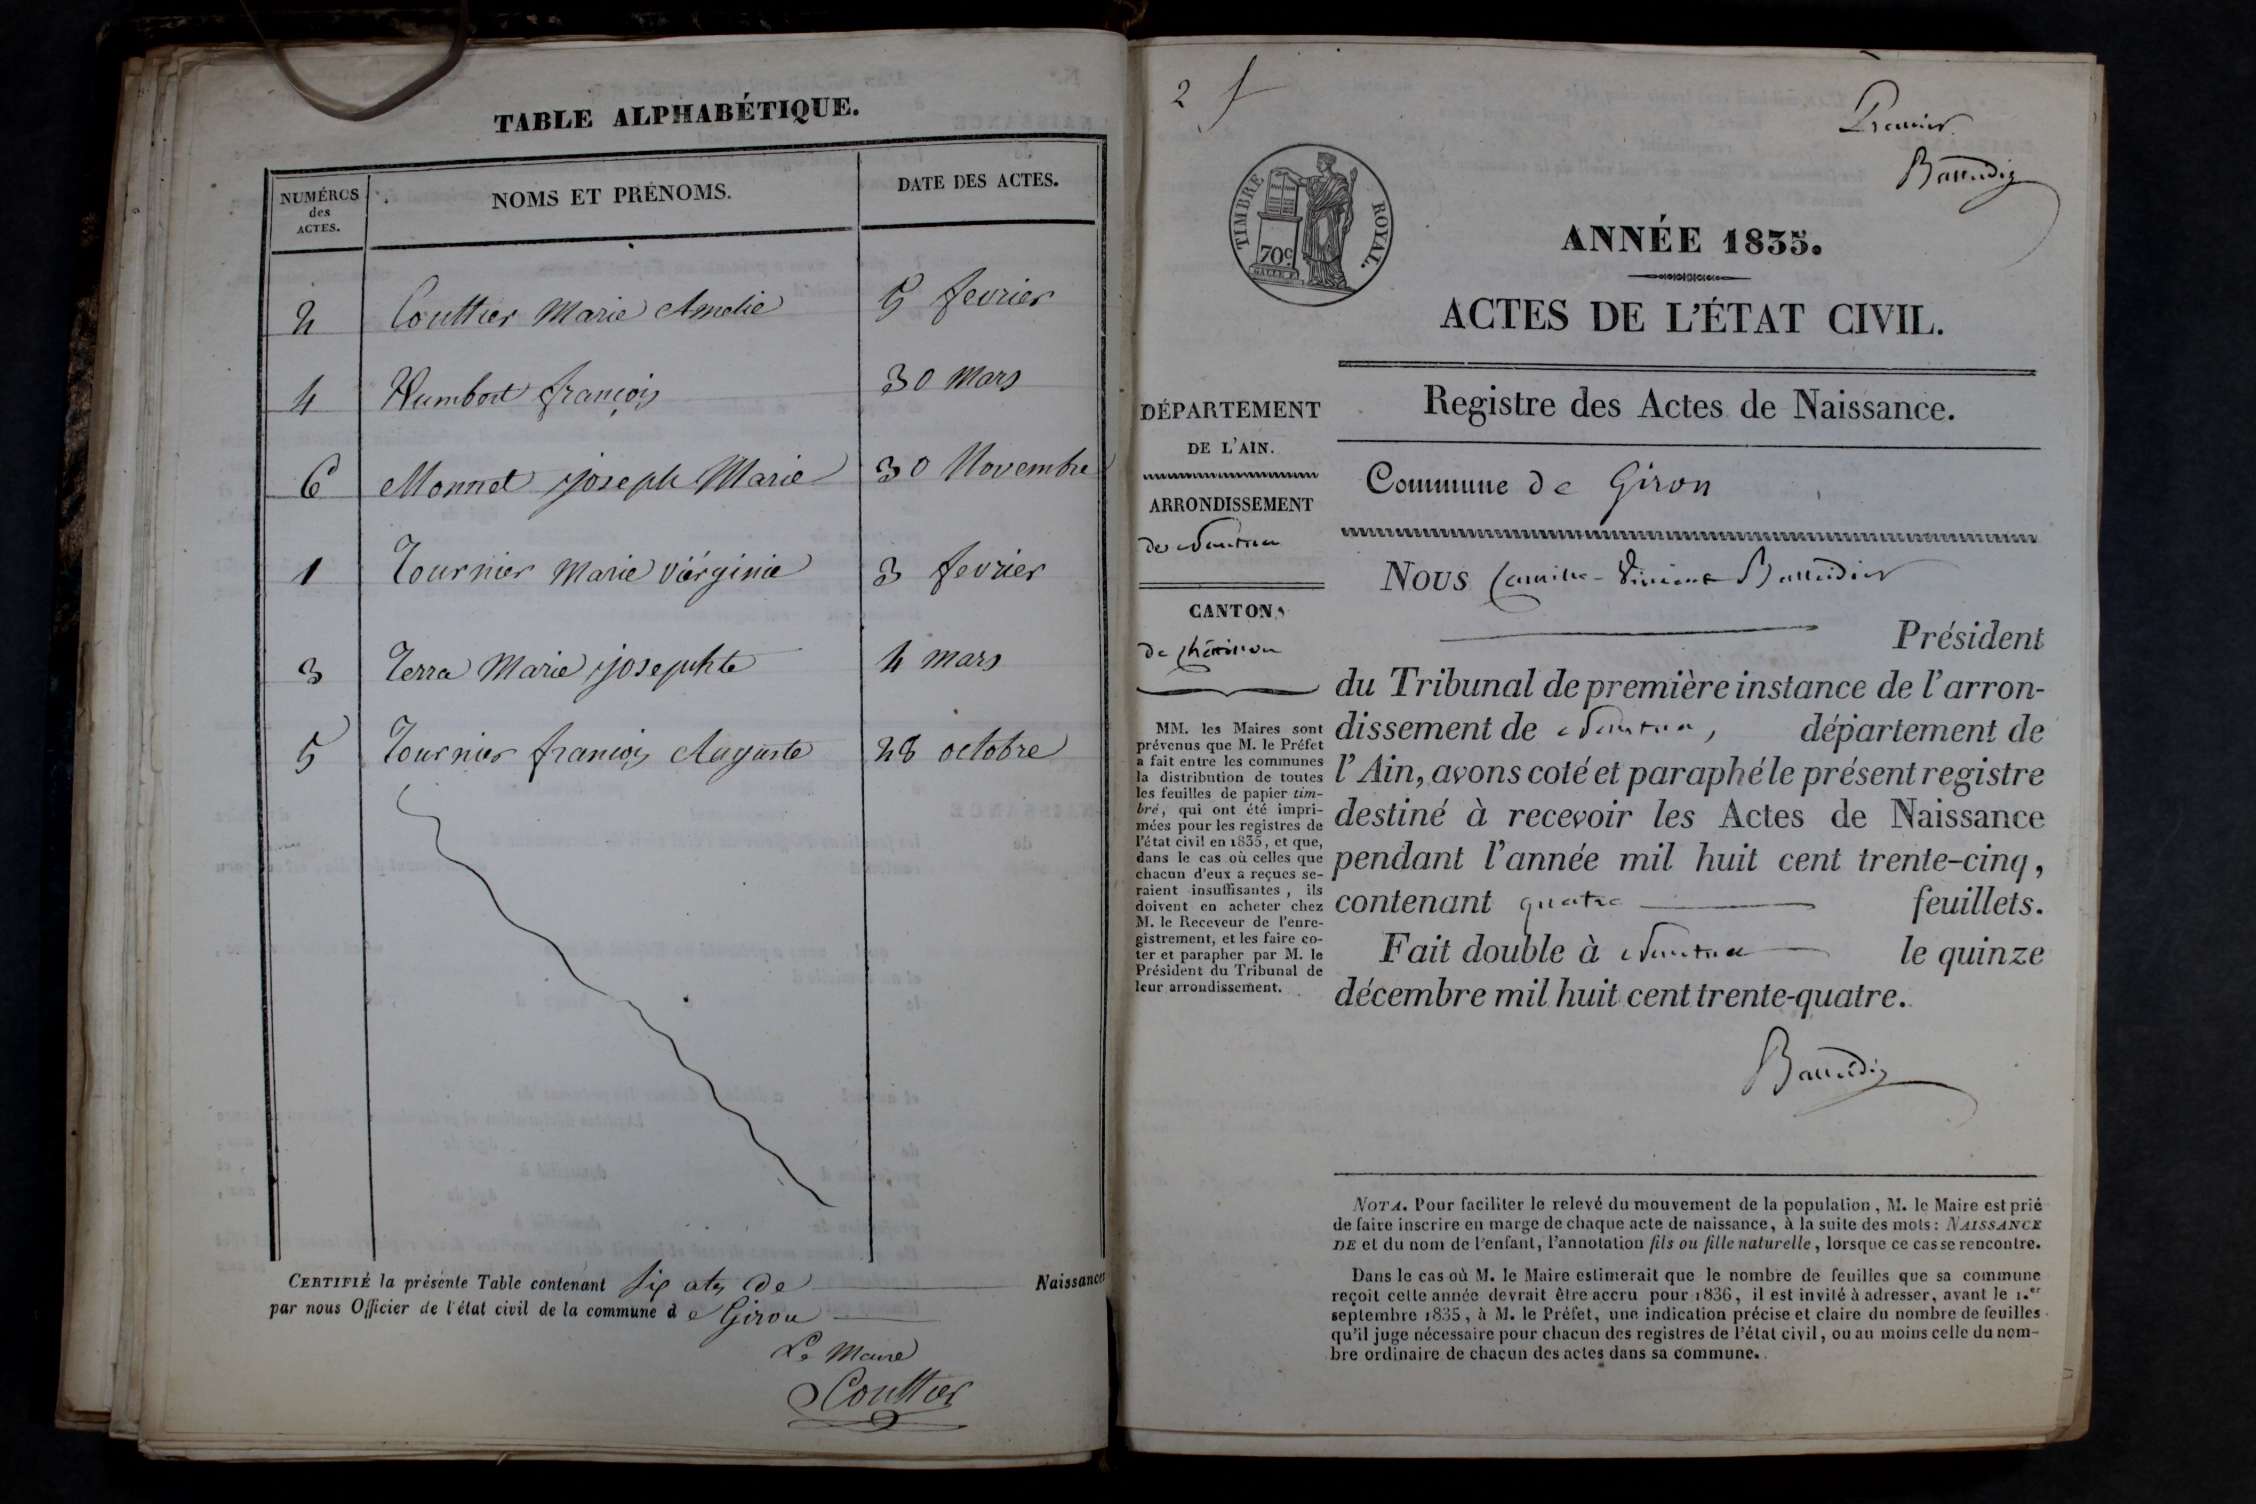 TABLE ALPHABÉTIQUE.
NUMÉROS
des
ACTES.
NOMS ET PRÉNOMS.
DATE DES ACTES.
2 Couttier Marie Amelie 5 fevrier
4 Humbert françois 30 mars
6 Monnet joseph Marie 30 Novembre
1 Tournier Marie virginie 3 fevrier
3 Terra Marie josephte 4 mars
5 Tournier francois Auguste 28 octobre
CERTIFIÉ la présente Table contenant six actes de Naissances
par nous Officier de l'état civil de la commune d e Giron
Le Maire
Couttier
2
Premier
TIMBRE ROYAL.
70c
ANNÉE 1835.
ACTES DE L'ÉTAT CIVIL.
Registre des Actes de Naissance.
Commune de Giron
DÉPARTEMENT
DE L'AIN.
ARRONDISSEMENT
de Nantua
CANTON
de Châtillon
MM. les Maires sont
prévenus que M. le Préfet
a fait entre les communes
la distribution de toutes
les feuilles de papier tim-
bré, qui ont été impri-
mées pour les registres de
l'état civil en 1835, et que,
dans le cas où celles que
chacun d'eux a reçues se-
raient insuffisantes, ils
doivent en acheter chez
M. le Receveur de l'enre-
gistrement, et les faire co-
ter et parapher par M. le
Président du Tribunal de
leur arrondissement.
Nous Camille-Vincent
Président
du Tribunal de première instance de l'arron-
dissement de Nantua, département de
l'Ain, avons coté et paraphé le présent registre
destiné à recevoir les Actes de Naissance
pendant l'année mil huit cent trente-cinq,
contenant quatre feuillets.
Fait double à Nantua le quinze
décembre mil huit cent trente-quatre.
NOTA. Pour faciliter le relevé du mouvement de la population, M. le Maire est prié
de faire inscrire en marge de chaque acte de naissance, à la suite des mots: NAISSANCE
DE et du nom de l'enfant, l'annotation fils ou fille naturelle, lorsque ce cas se rencontre.
Dans le cas où M. le Maire estimerait que le nombre de feuilles que sa commune
reçoit cette année devrait être accru pour 1836, il est invité à adresser, avant le 1.er
septembre 1835, à M. le Préfet, une indication précise et claire du nombre de feuilles
qu'il juge nécessaire pour chacun des registres de l'état civil, ou au moins celle du nom-
bre ordinaire de chacun des actes dans sa commune.